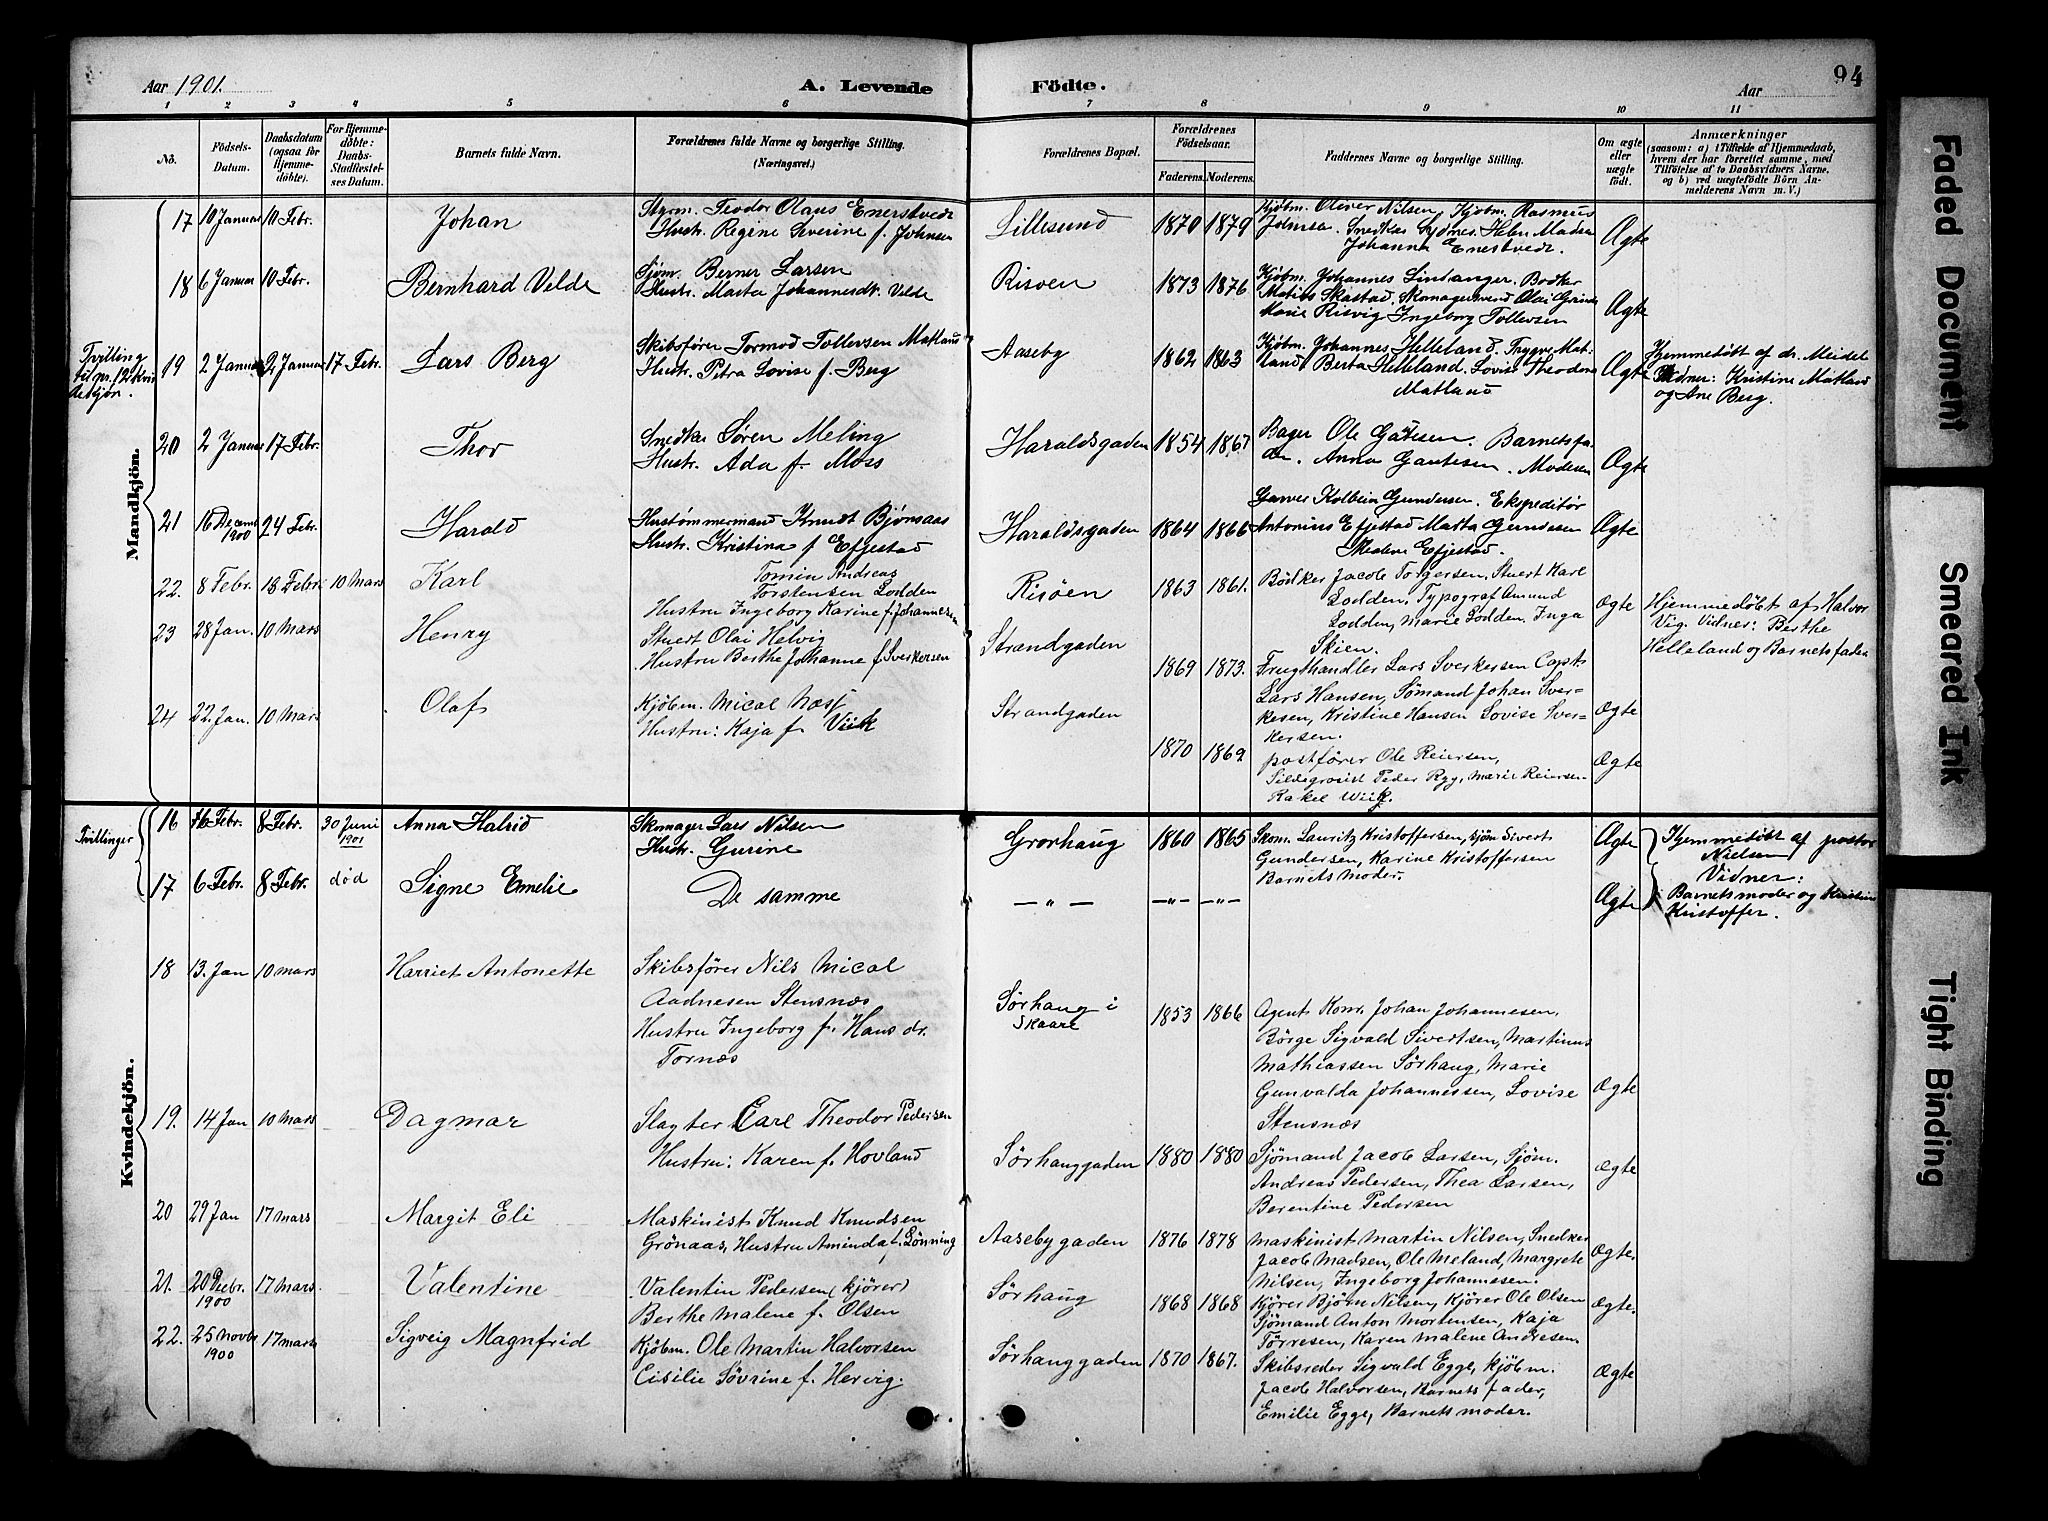 Aar 1901.
A. Levende
Födte.
Aar
94
1 2 3 4 5 6 7 8 9 10 11
No.
Födsels-
Datum.
Daabsdatum
(ogsaa for
Hjemme-
döbte).
For Hjemme-
döbte:
Daabs-
Stadfæstel-
ses Datum.
Barnets fulde Navn.
Forældrenes fulde Navne og borgerlige Stilling.
(Næringsvei.)
Forældrenes Bopæl.
Forældrenes
Födselsaar.
Faderens. Moderens.
Faddernes Navne og borgerlige Stilling.
Om ægte
eller
uægte
födt.
Anmærkninger
(saasom: a) i Tilfælde af Hjemmedaab,
hvem der har forrettet samme, med
Tilföielse af to Daabsvidners Navne.
og b) ved uægtefödte Börn An-
melderens Navn m. V.)
Mandkjön.
17 10 Januar 10 Febr. Johan
Styrm. Teodor Olaus Enerstvedt
Hustr. Regine Severine f. Johnsen
Lillesund 1870 1879
Kjöbm. Oliver Nilsen, Kjöbm. Rasmus
Johanna Enestvedt.
Ægte
18 6 Januar 10 Febr. Bernhard Velde
Sjöm. Berner Larsen
Hustr. Marta Johannesdt. Velde
Risöen 1873 1876
Kjöbm. Johannes Lindanger. Bödker
Marie Risvig Ingeborg Tollevsen
Ægte
Tvilling
til nr. 12 Kvin
dekjön.
19 2 Januar 2 Januar 17 Febr. Lars Berg
Skibsförer Tormod Tollevsen Matland
Hustr. Petra Lovise f. Berg
Aaseby 1862 1863
Kjöbm. Johannes Helleland. Trygve Mat-
land, Berta Helleland. Lovise Theodora
Matland
Ægte
Hjemmedöbt af dr. Meidel
Vidner: Kristine Matland
og Ane Berg.
20 2 Januar 17 Febr. Thor
Snedker Sören Meling
Hustr. Ada f. Moss
Haraldsgaden 1854 1867
Bager Ole Gautesen. Barnets fa-
der. Anna Gautesen. Moderen
Ægte
21 16 Decemb 1900 24 Febr. Harald
Hustömmermand Knudt Björnsaas
Hustr. Kristina f. Efjestad
Haraldsgaden 1864 1866
Garver Kolbein Gundersen. Ekspeditör
Antonius Efjestad Marta Gundesen
Malene Efjestad.
Ægte
22. 8 Febr. 18 Febr. 10 Mars Karl
Tomin Andreas
Torstensen Lodden
Hustru Ingeborg Karine f. Johannesen
Risöen 1863 1861.
Bödker Jacob Torgersen, Stuert Karl
Lodden, Typograf Amund
Lodden, Marie Lodden, Inga
Skien.
Ægte
Hjemmedöbt af Halvor
Vig. Vidner: Berthe
Helleland og Barnets fader
23 28 Jan. 10 Mars Henry
Stuert Olai Helvig
Hustru Berthe Johanne f. Sverkersen
Strandgaden 1869 1873.
Frugthandler Lars Sverkersen Capt.
Lars Hansen, Sömand Johan Sver-
kesen, Kristine Hansen Lovise Sver-
kersen.
Ægte
24 22. Jan. 10 Mars Olaf
Kjöbm. Mical Næss
Hustru: Kaja f. Viik
Strandgaden 1870 1869
postförer Ole Reiersen,
Sildegrosist Peder Ryg, Marie Reiersen
Rakel Wiik.
Ægte
Kvindekjön.
Tvillinger
16 6 Febr. 8 Febr. 30 Juni 1901 Anna Halrid
Skomager Lars Nilsen
Hustr. Gurine
Grorhaug 1860 1865
Skom. Lauritz Kristoffersen, sjöm Sivert
Gundersen, Karine Kristoffersen
Barnets moder.
Ægte
Hjemmedöbt af pastor
Nielsen
Vidner:
Barnets moder og Kristine
Kristoffer.
17 6 Febr. 8 Febr. död Signe Emelie
De samme
— " — — " — — " —
Ægte
18 13. Jan 10 Mars Harriet Antonette
Skibsförer Nils Mical
Aadnesen Stensnæs
Hustru Ingeborg f. Hans dr.
Tornæs
Sörhaug i
Skaare
1853 1866
Agent Konr. Johan Johannesen,
Börge Sigvald Sivertsen, Martinus
Mathiassen Sörhaug, Marie
Gunvalda Johannessen, Lovise
Stensnæs
Ægte
19. 14 Jan 10 Mars Dagmar
Slagter Carl Theodor Pedersen
Hustru: Karen f. Hovland
Sörhauggaden 1880 1880
Sjömand Jacob Larsen, Sjöm.
Andreas Pedersen, Thea Larsen,
Berentine Pedersen
Ægte
20 29 Jan 17 Mars Margit Eli
Maskinist Knud Knudsen
Grönaas, Hustru Aminda f. Lönning
Aasebygaden 1876 1878
Maskinist Martin Nilsen, Snedker
Jacob Madsen, Ole Meland, Margrete
Nilsen, Ingeborg Johannesen.
Ægte.
21. 20 Decbr. 1900 17 Mars Valentine
Valentin Pedersen (kjörer)
Berthe Malene f. Olsen
Sörhaug 1868 1868
Kjörer Björn Nilsen, Kjörer Ole Olsen
Sjömand Anton Mortensen, Kaja
Törresen, Karen Malene Andresen.
Ægte.
22. 25 novbr 1900 17 Mars Sigveig Magnfrid
Kjöbm. Ole Martin Halvorsen
Cisilie Sövrine f. Hervig.
Sörhauggaden 1870 1867.
Skibsreder Sigvald Egge, Kjöbm.
Jacob Halvorsen, Barnets fader,
Emilie Egge, Barnets moder.
Ægte
Faded Document
Smeared Ink
Tight Binding